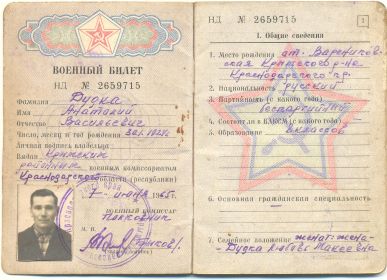 ВОЕННЫЙ БИЛЕТ
НД № 2659715
Фамилия Дудка
Имя Анатолий
Отчество Васильевич
Число, месяц и год рождения 1924г.
Личная подпись владельца
Выдан Крымским
районным военным комиссариатом
Краснодарского (республики)
7 июня 1965г.
ВОЕННЫЙ КОМИССАР
Полковник
М. П.
НД № 2659715
1
I. Общие сведения
1. Место рождения ст. Варениковская
Крымского р-на
Краснодарского кр.
2. Национальность русский
3. Партийность (с какого года)
беспартийный
4. Состоит ли в ВЛКСМ (с какого года)
5. Образование классов
6. Основная гражданская специальность
7. Семейное положение женат: жена-
Дудка Любовь Макеевна